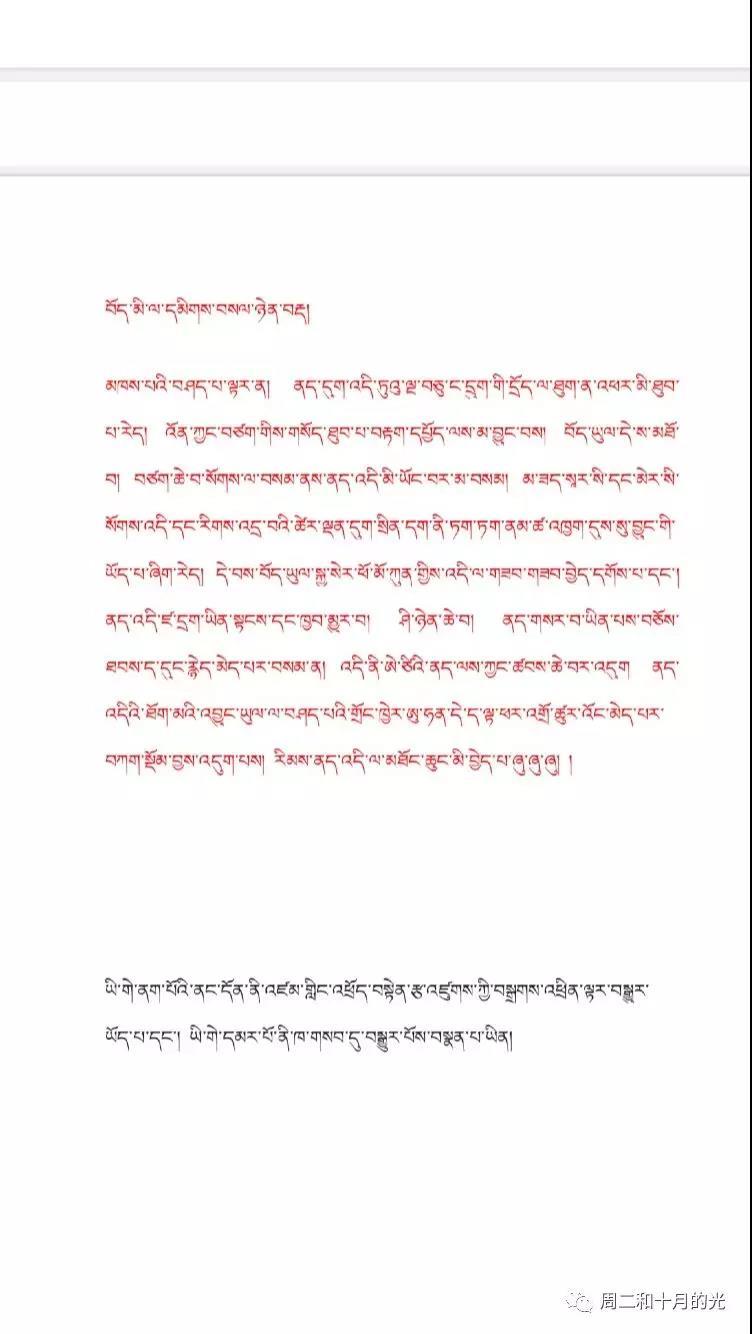 བོད་མི་ལ་དམིགས་བསལ་ཉེན་བརྡ།
མཁས་པའི་བཤད་པ་ལྟར་ན། ནད་དུག་འདི་ཏུའུ་ལྔ་བཅུ་ང་དྲུག་གི་དྲོད་ལ་ཐུག་ན་འཕར་མི་ཐུབ་
པ་རེད། འོན་ཀྱང་བཙག་གིས་གསོད་ཐུབ་པ་བརྟག་དཔྱོད་ལས་མ་བྱུང་བས། བོད་ཡུལ་དེ་ས་མཐོ་
བ། བཙག་ཆེ་བ་སོགས་ལ་བསམ་ནས་ནད་འདི་མི་ཡོང་བར་མ་བསམ། མ་ཟད་སཱར་སི་དང་མེར་སི་
སོགས་འདི་དང་རིགས་འདྲ་བའི་ཚེར་ལྡན་དུག་སྲིན་དག་ནི་ཏག་ཏག་ནམ་ཚ་འཁྱག་དུས་སུ་བྱུང་གི་
ཡོད་པ་ཞིག་རེད། དེ་བས་བོད་ཡུལ་སྐྱ་སེར་ཕོ་མོ་ཀུན་གྱིས་འདི་ལ་གཟབ་གཟབ་བྱེད་དགོས་པ་དང་།
ནད་འདི་ཛ་དྲག་ཡིན་སྟངས་དང་ཁྱབ་མྱུར་བ། ཤི་ཉེན་ཆེ་བ། ནད་གསར་བ་ཡིན་པས་བཅོས་
ཐབས་ད་དུང་རྙེད་མེད་པར་བསམ་ན། འདི་ནི་ཨེ་ཙིའི་ནད་ལས་ཀྱང་ཚབས་ཆེ་བར་འདུག ནད་
འདིའི་ཐོག་མའི་འབྱུང་ཡུལ་ལ་བཤད་པའི་གྲོང་ཁྱེར་ཨུ་ཧན་དེ་ད་ལྟ་ཕར་འགྲོ་ཚུར་འོང་མེད་པར་
བཀག་སྡོམ་བྱས་འདུག་པས། རིམས་ནད་འདི་ལ་མཐོང་ཆུང་མི་བྱེད་པ་ཞུ་ཞུ་ཞུ། །
ཡི་གེ་ནག་པོའི་ནང་དོན་ནི་འཛམ་གླིང་འཕྲོད་བསྟེན་རྩ་འཛུགས་ཀྱི་བསྒྲགས་འཕྲིན་ལྟར་བསྒྱུར་
ཡོད་པ་དང་། ཡི་གེ་དམར་པོ་ནི་ཁ་གསབ་ཏུ་བསྒྱུར་པོས་བསྣན་པ་ཡིན།
周二和十月的光